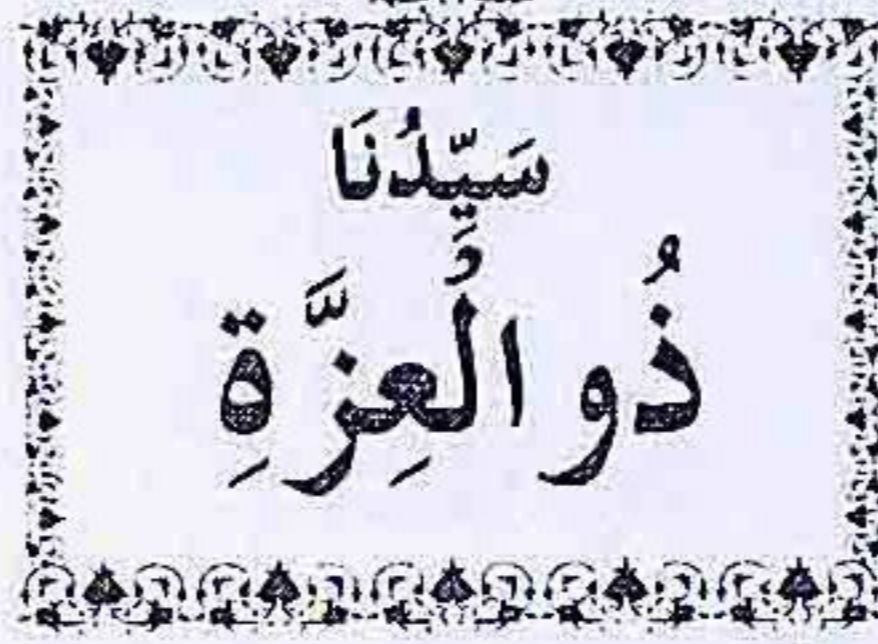 سَيِّدُنَا
ذُو الْعِزَّةِ